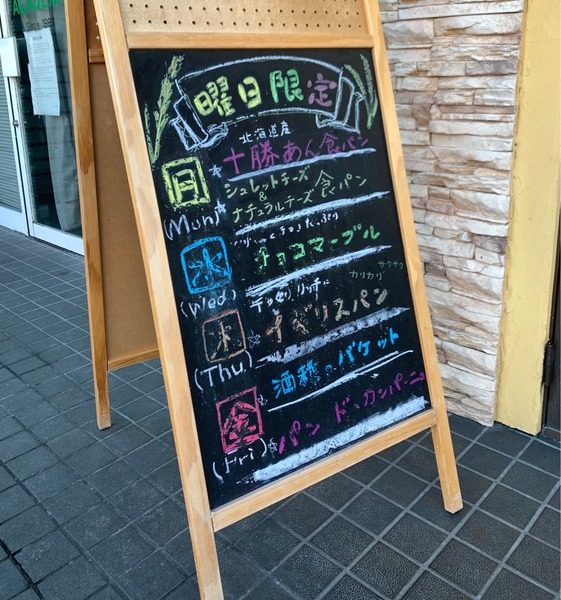 ACADEMY
Since 1989
曜日限定
北海道産
十勝あん食パン
月
(Mon)
シュレットチーズ
&
ナチュラルチーズ食パン
たっぷり
水
チョコマーブル
(Wed)
サクサク
カリカリ
木
イギリスパン
(Thu)
酒種のバケット
金
パン ド・カンパーニュ
(Fri)